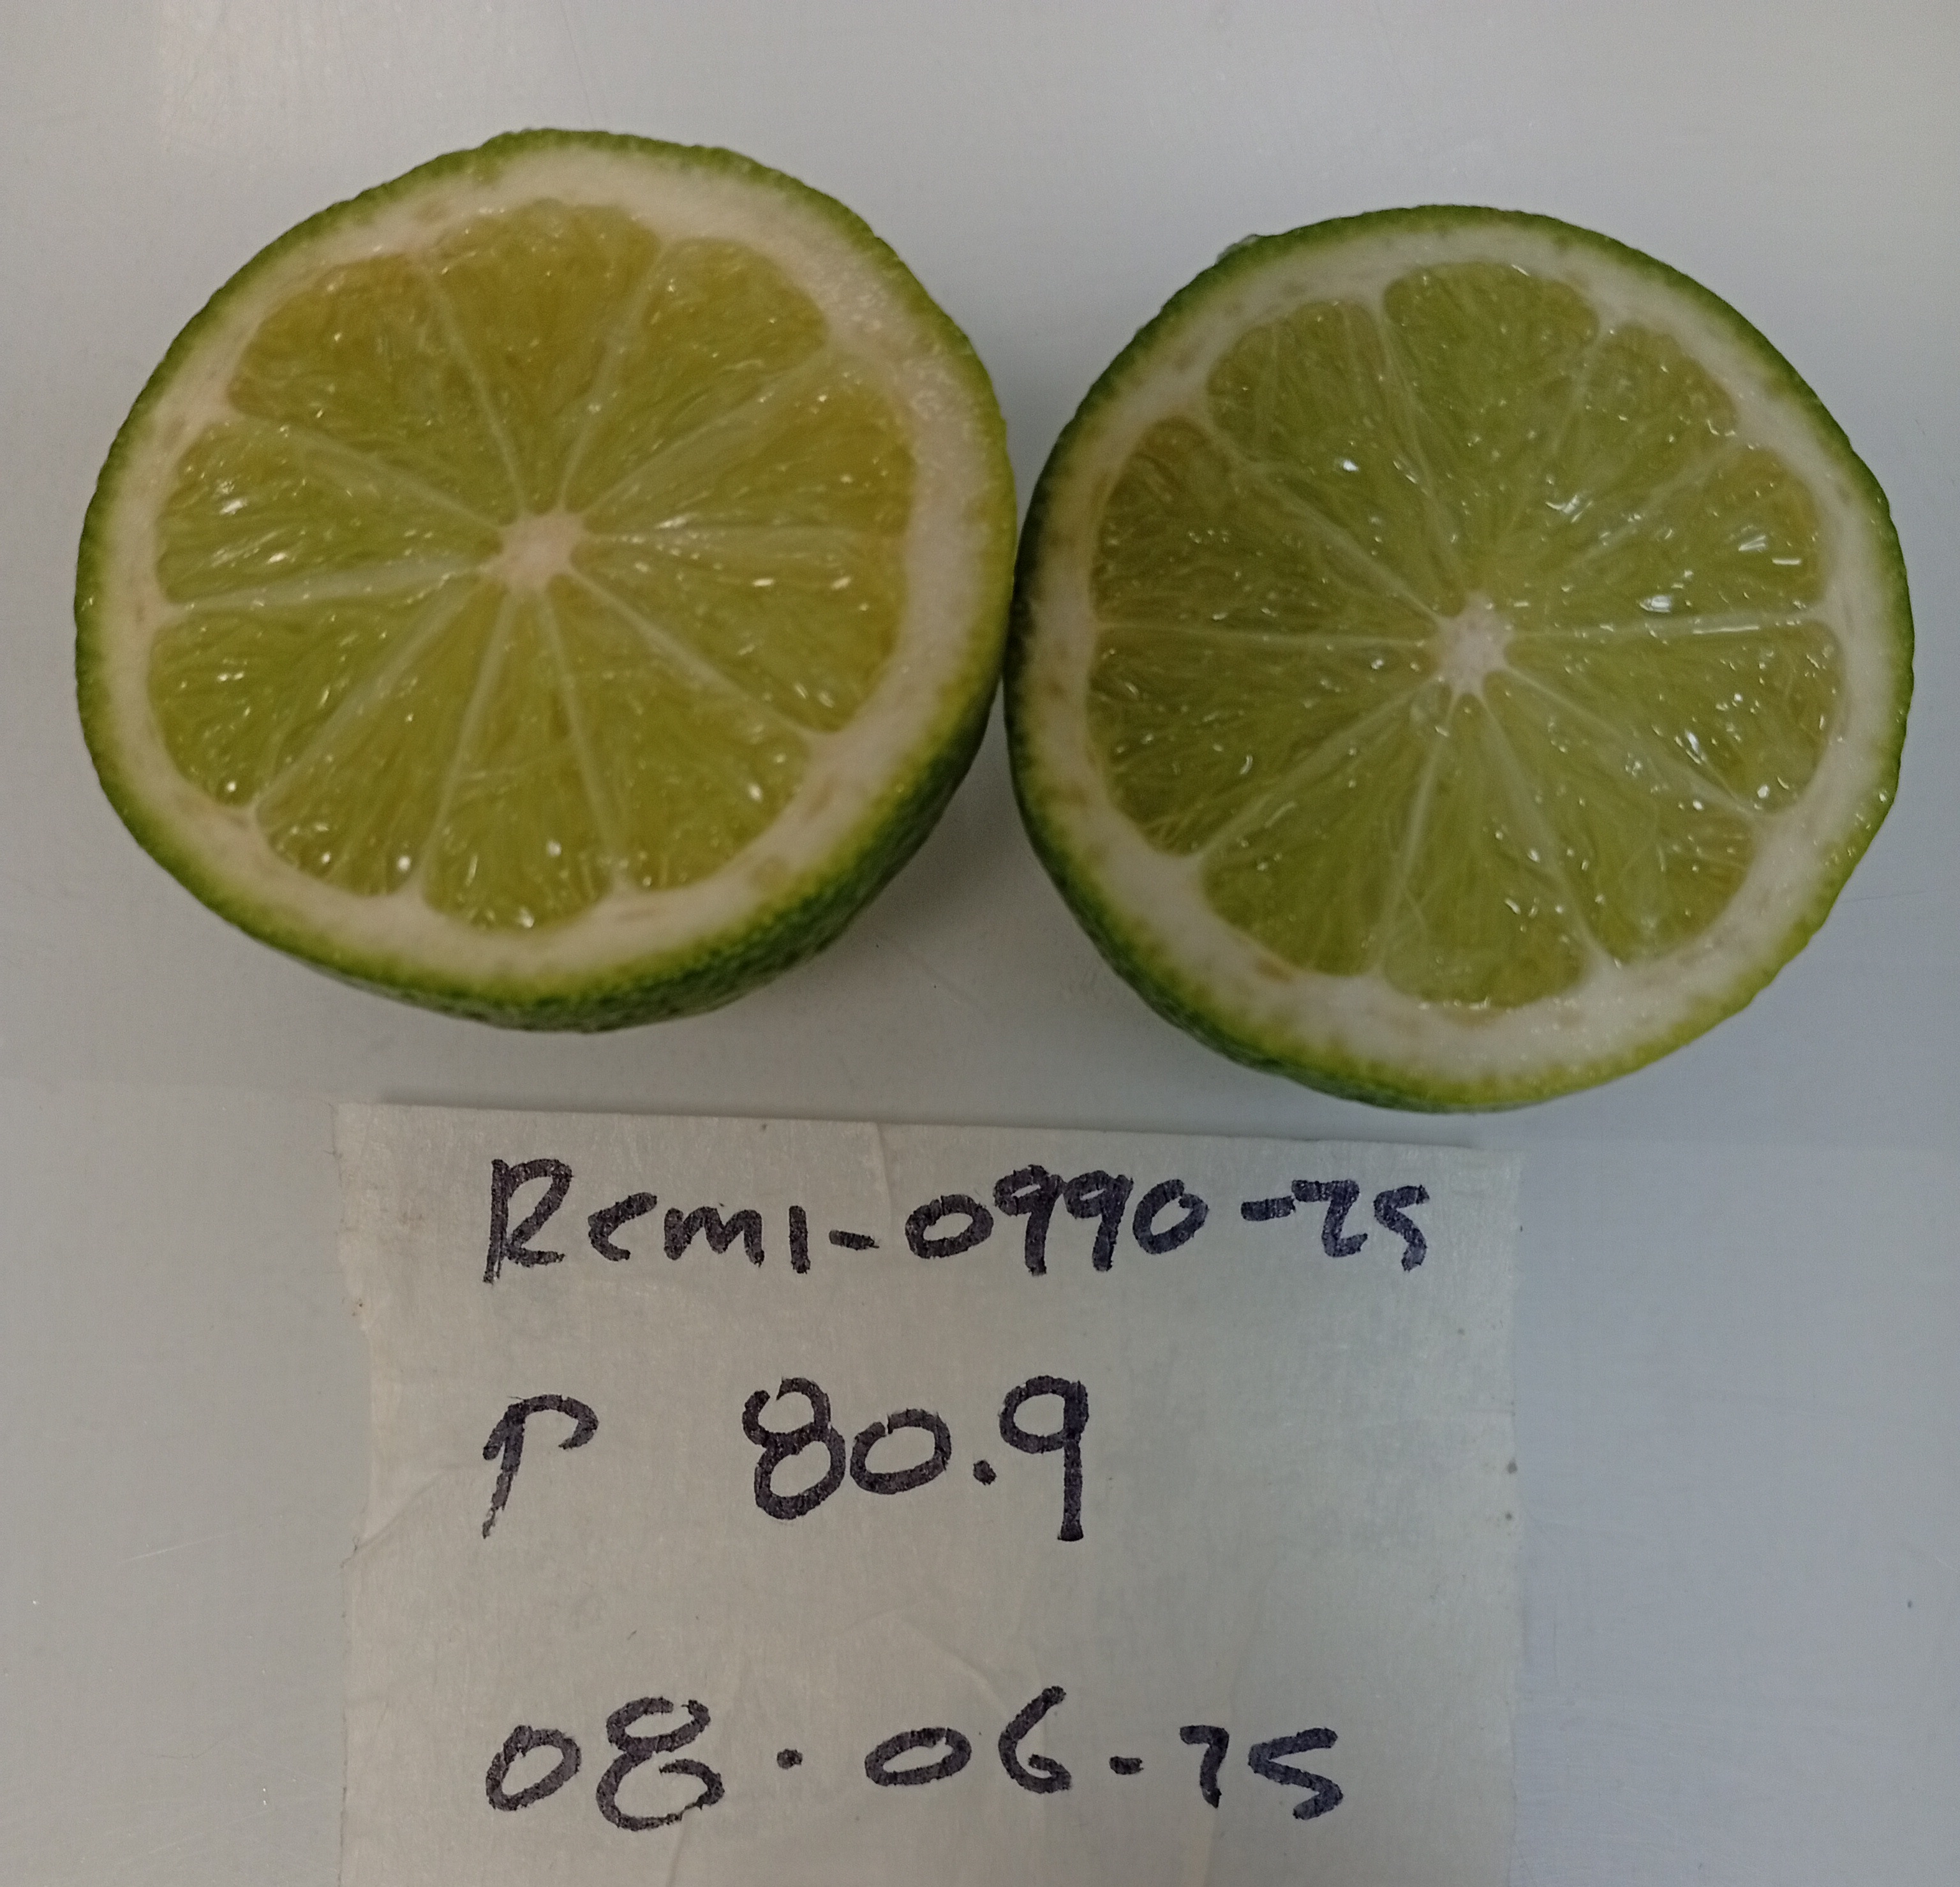 Remi-0990-25
P 80.9
08.06-25